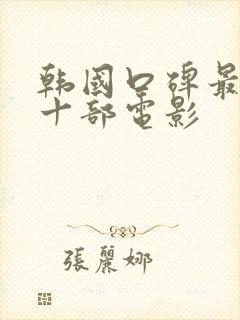 韩國口碑最
十部電影
張麗娜